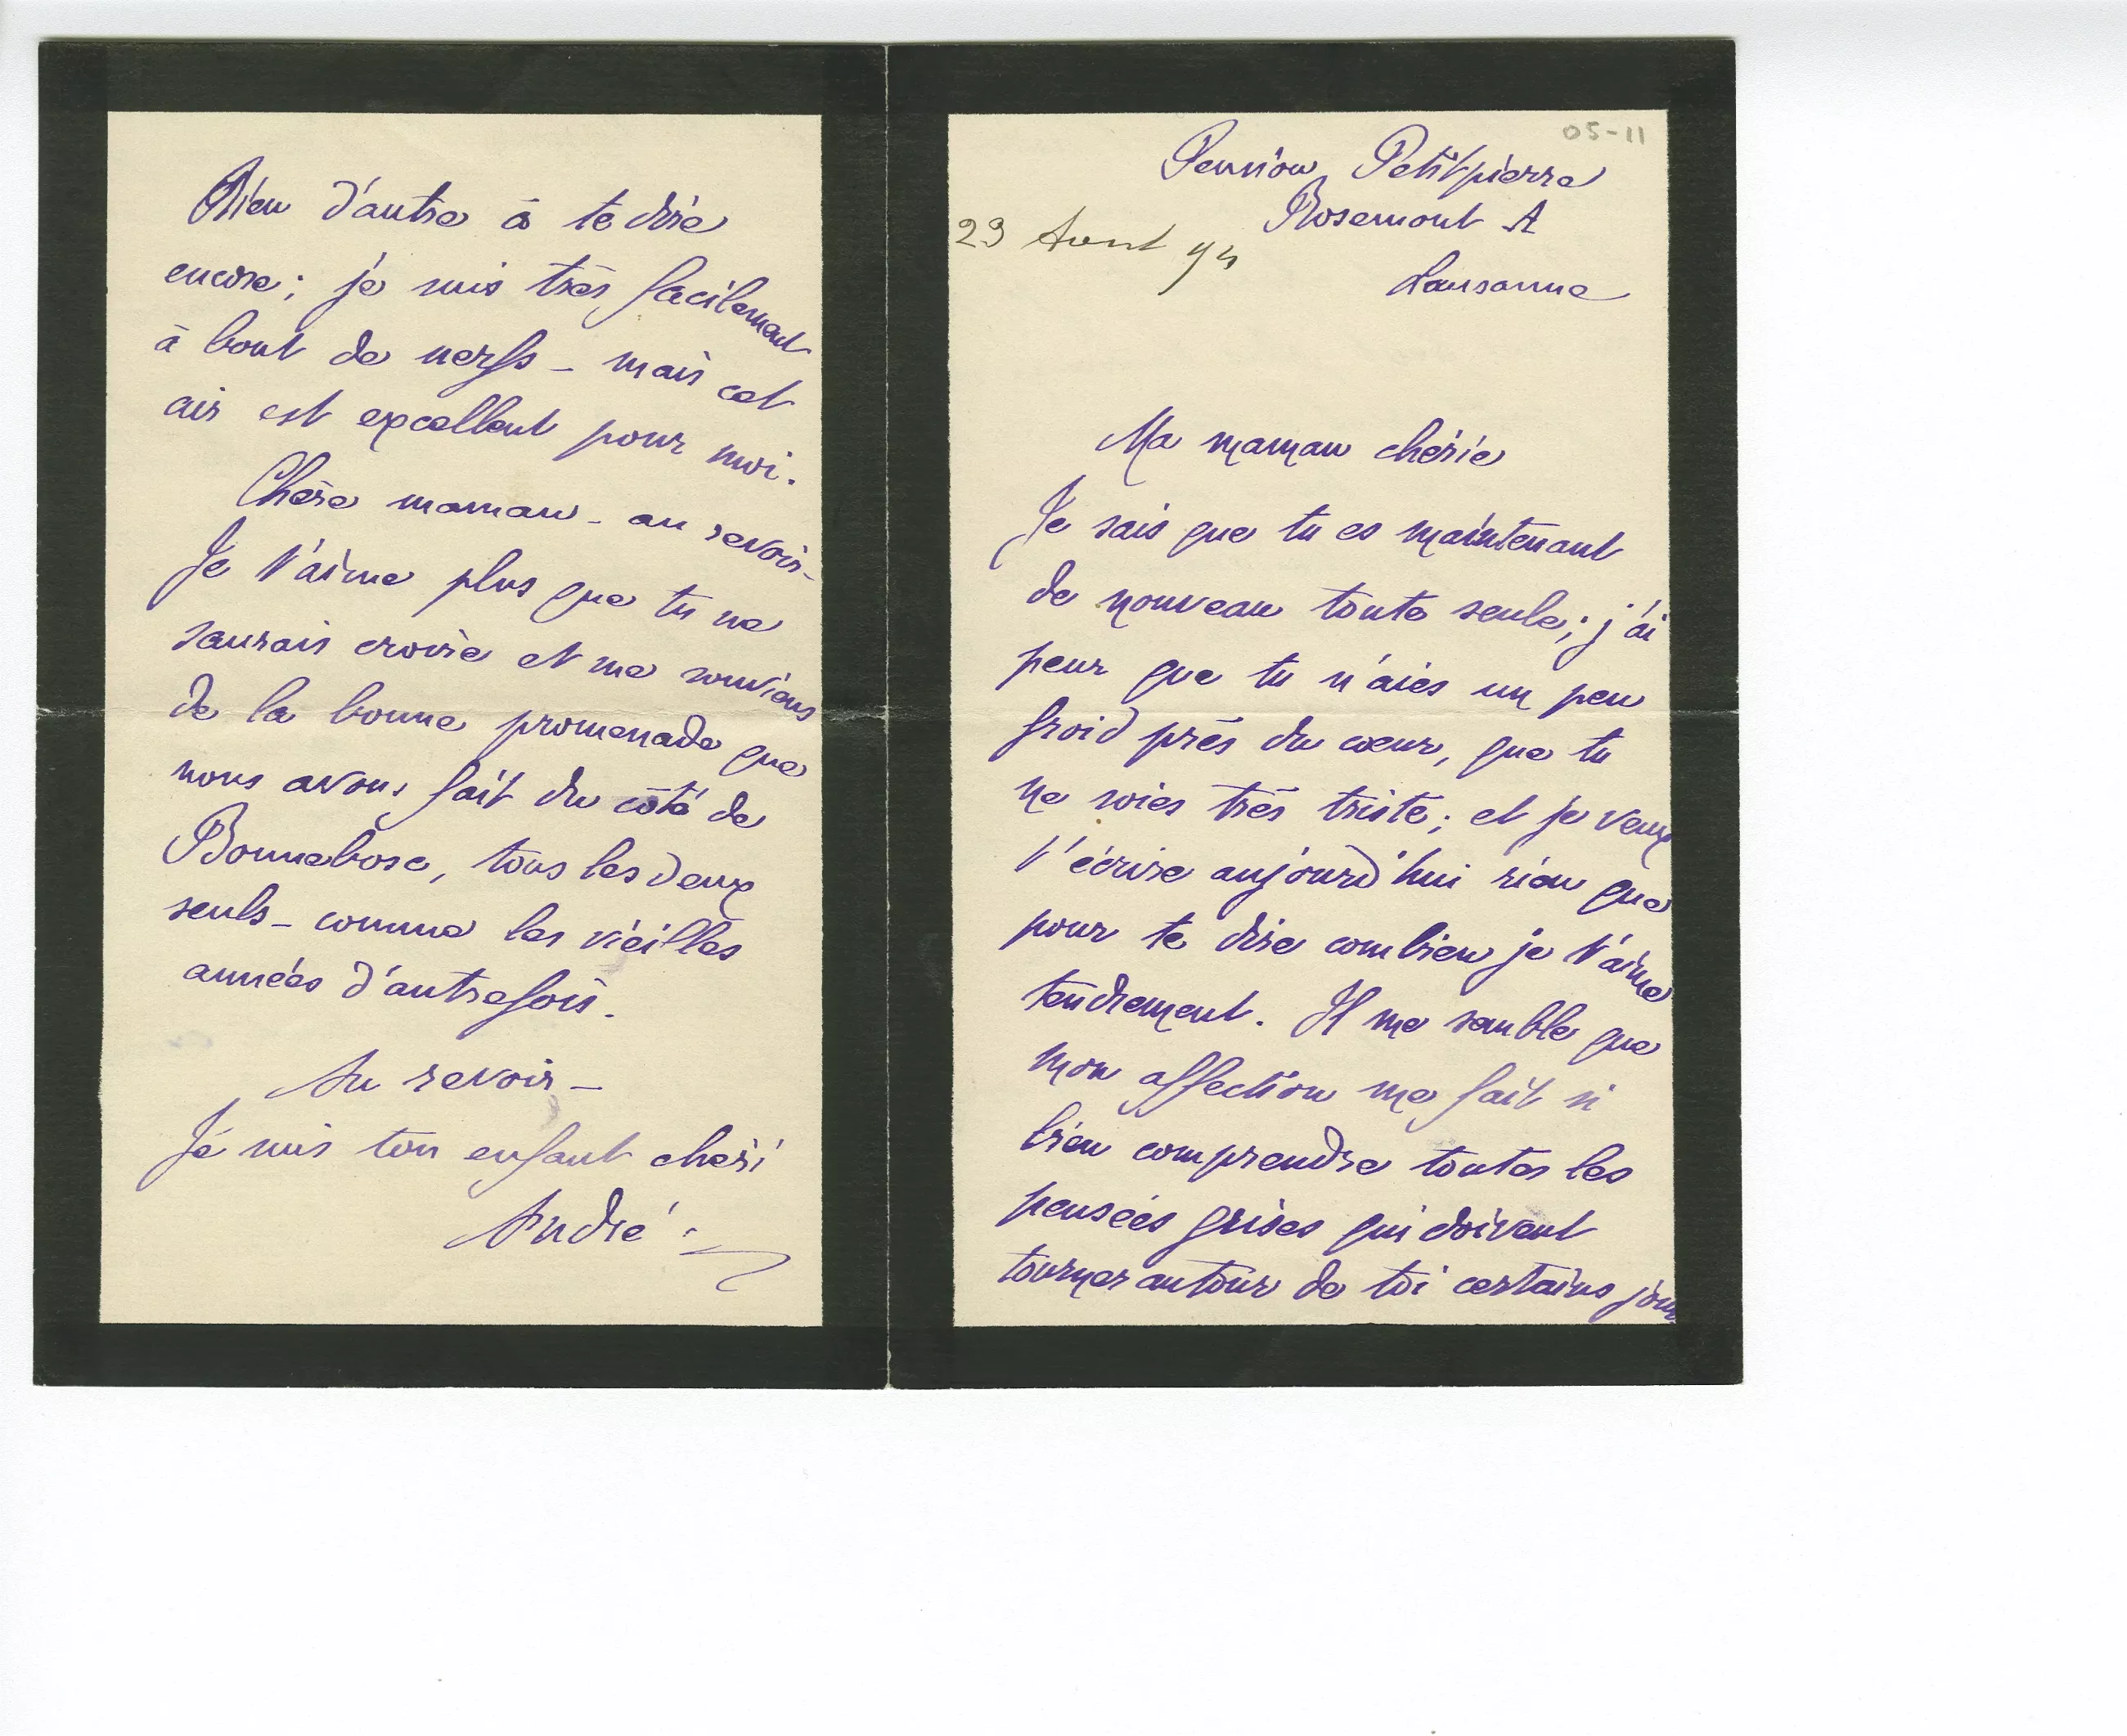 05-11
Pension Petitpierre
Rosemont A
23 Aout 94
Lausanne
Ma maman chérie
Je sais que tu es maintenant
de nouveau toute seule; j'ai
peur que tu n'aies un peu
froid près du cœur, que tu
ne soies très triste; et je veux
t'écrire aujourd'hui rien que
pour te dire combien je t'aime
tendrement. Il me semble que
mon affection me fait si
bien comprendre toutes les
pensées grises qui doivent
tourner autour de toi certains jours
Rien d'autre à te dire
encore; je suis très facilement
à bout de nerfs - mais cet
air est excellent pour moi.
Chère maman - au revoir -
Je t'aime plus que tu ne
saurais croire et me souviens
de la bonne promenade que
nous avons fait du côté de
Bonnebosc, tous les deux
seuls - comme les vieilles
années d'autrefois.
Au revoir -
Je suis ton enfant chéri
André.